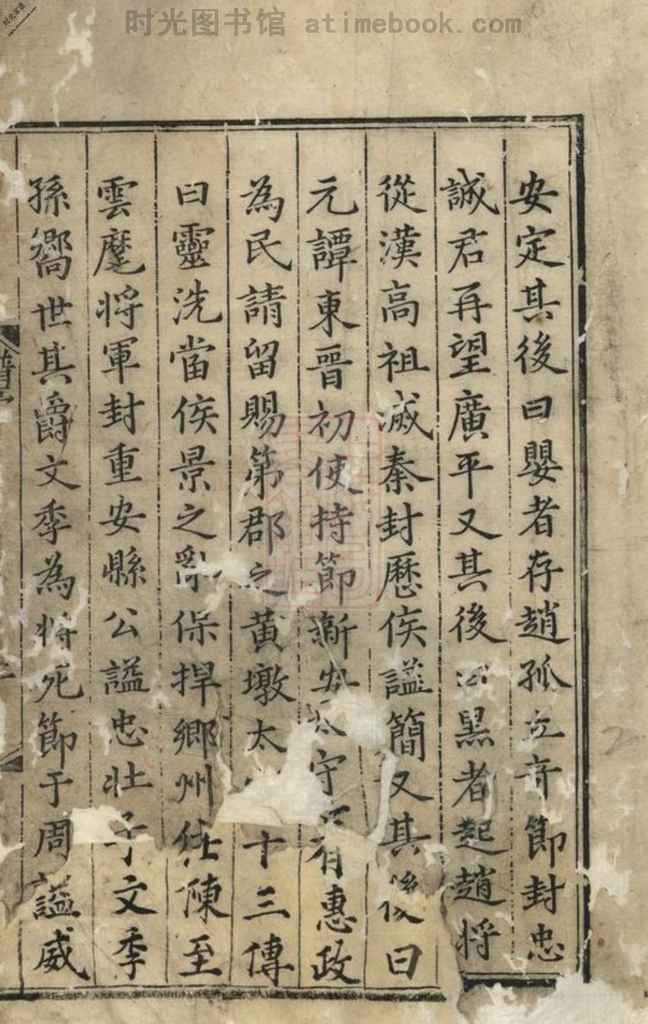 时光图书馆 · atimebook.com
安定其後曰嬰者存趙孤立奇節封忠
誠君再望廣平又其後曰黑者起趙將
從漢高祖滅秦封歷侯謚簡又其後曰
元譚東晉初使持節新安太守有惠政
為民請留賜第郡之黃墩太十三傳
曰靈洗當侯景之亂保捍鄉州仕陳至
雲麾將軍封重安縣公謚忠壯子文季
孫嚮世其爵文季為將死節于周謚威
譜